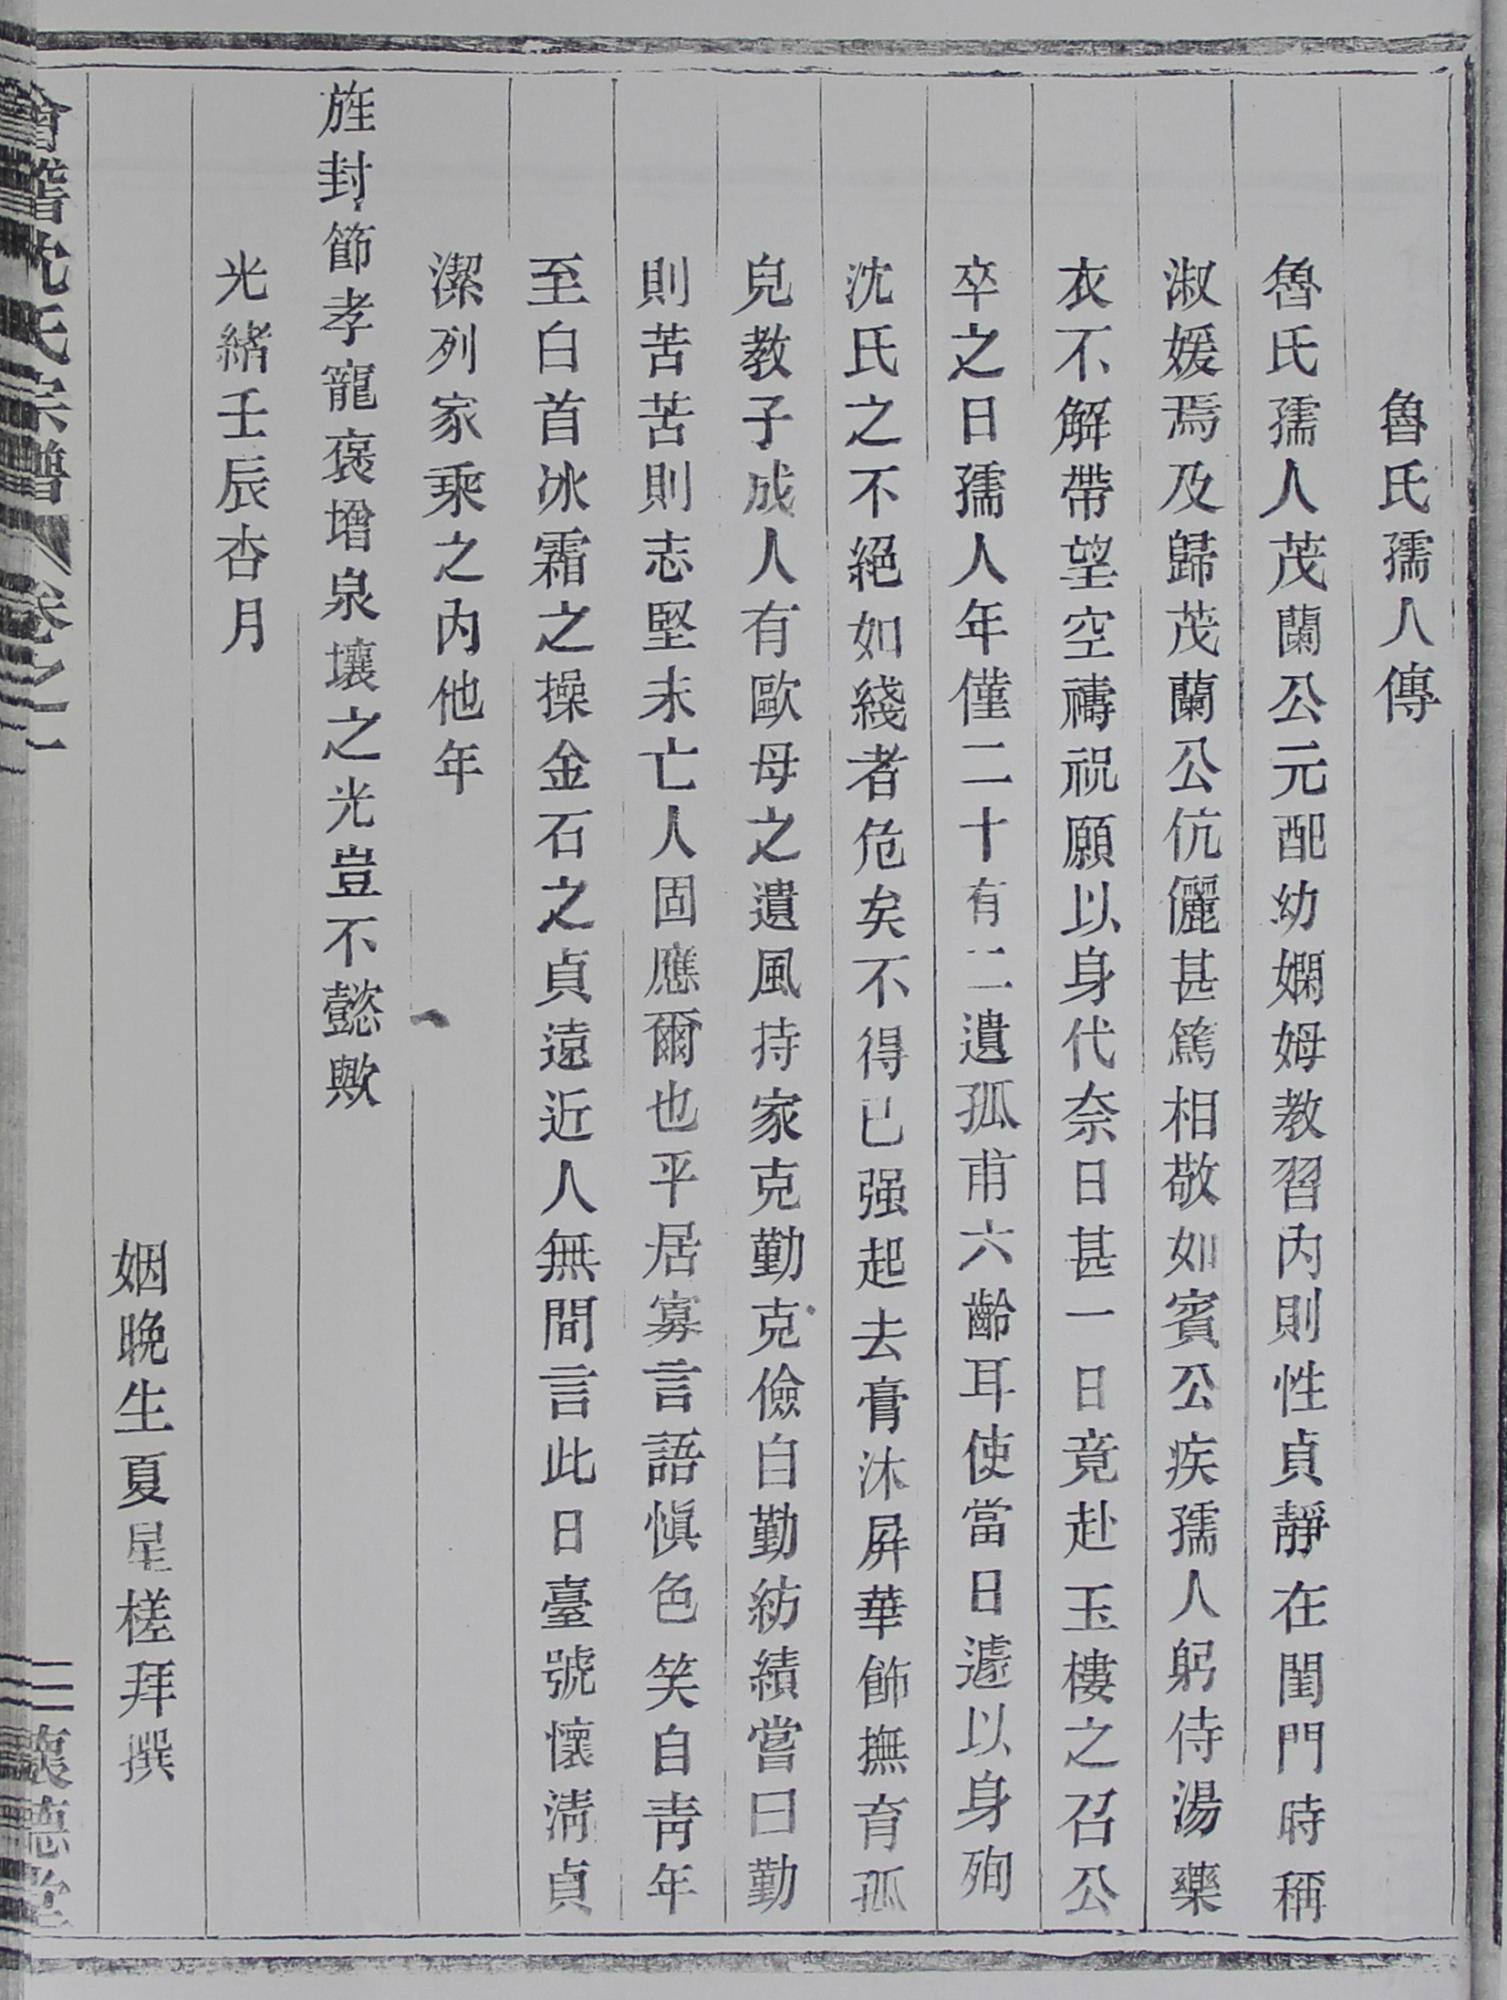 魯氏孺人傳
魯氏孺人茂蘭公元配幼嫻姆教習內則性貞靜在閨門時稱
淑媛焉及歸茂蘭公伉儷甚篤相敬如賓公疾孺人躬侍湯藥
衣不解帶望空禱祝願以身代奈日甚一日竟赴玉樓之召公
卒之日孺人年僅二十有二遺孤甫六齡耳使當日遽以身殉
沈氏之不絕如綫者危矣不得已强起去膏沐屏華飾撫育孤
兒教子成人有歐母之遺風持家克勤克儉自勤紡績嘗曰勤
則苦苦則志堅未亡人固應爾也平居寡言語愼色笑自靑年
至白首冰霜之操金石之貞遠近人無間言此日臺號懷淸貞
潔列家乘之內他年
旌封節孝寵褒增泉壤之光豈不懿歟
光緒壬辰杏月
姻晚生夏星槎拜撰
會稽沈氏宗譜 卷之一 三 懷德堂